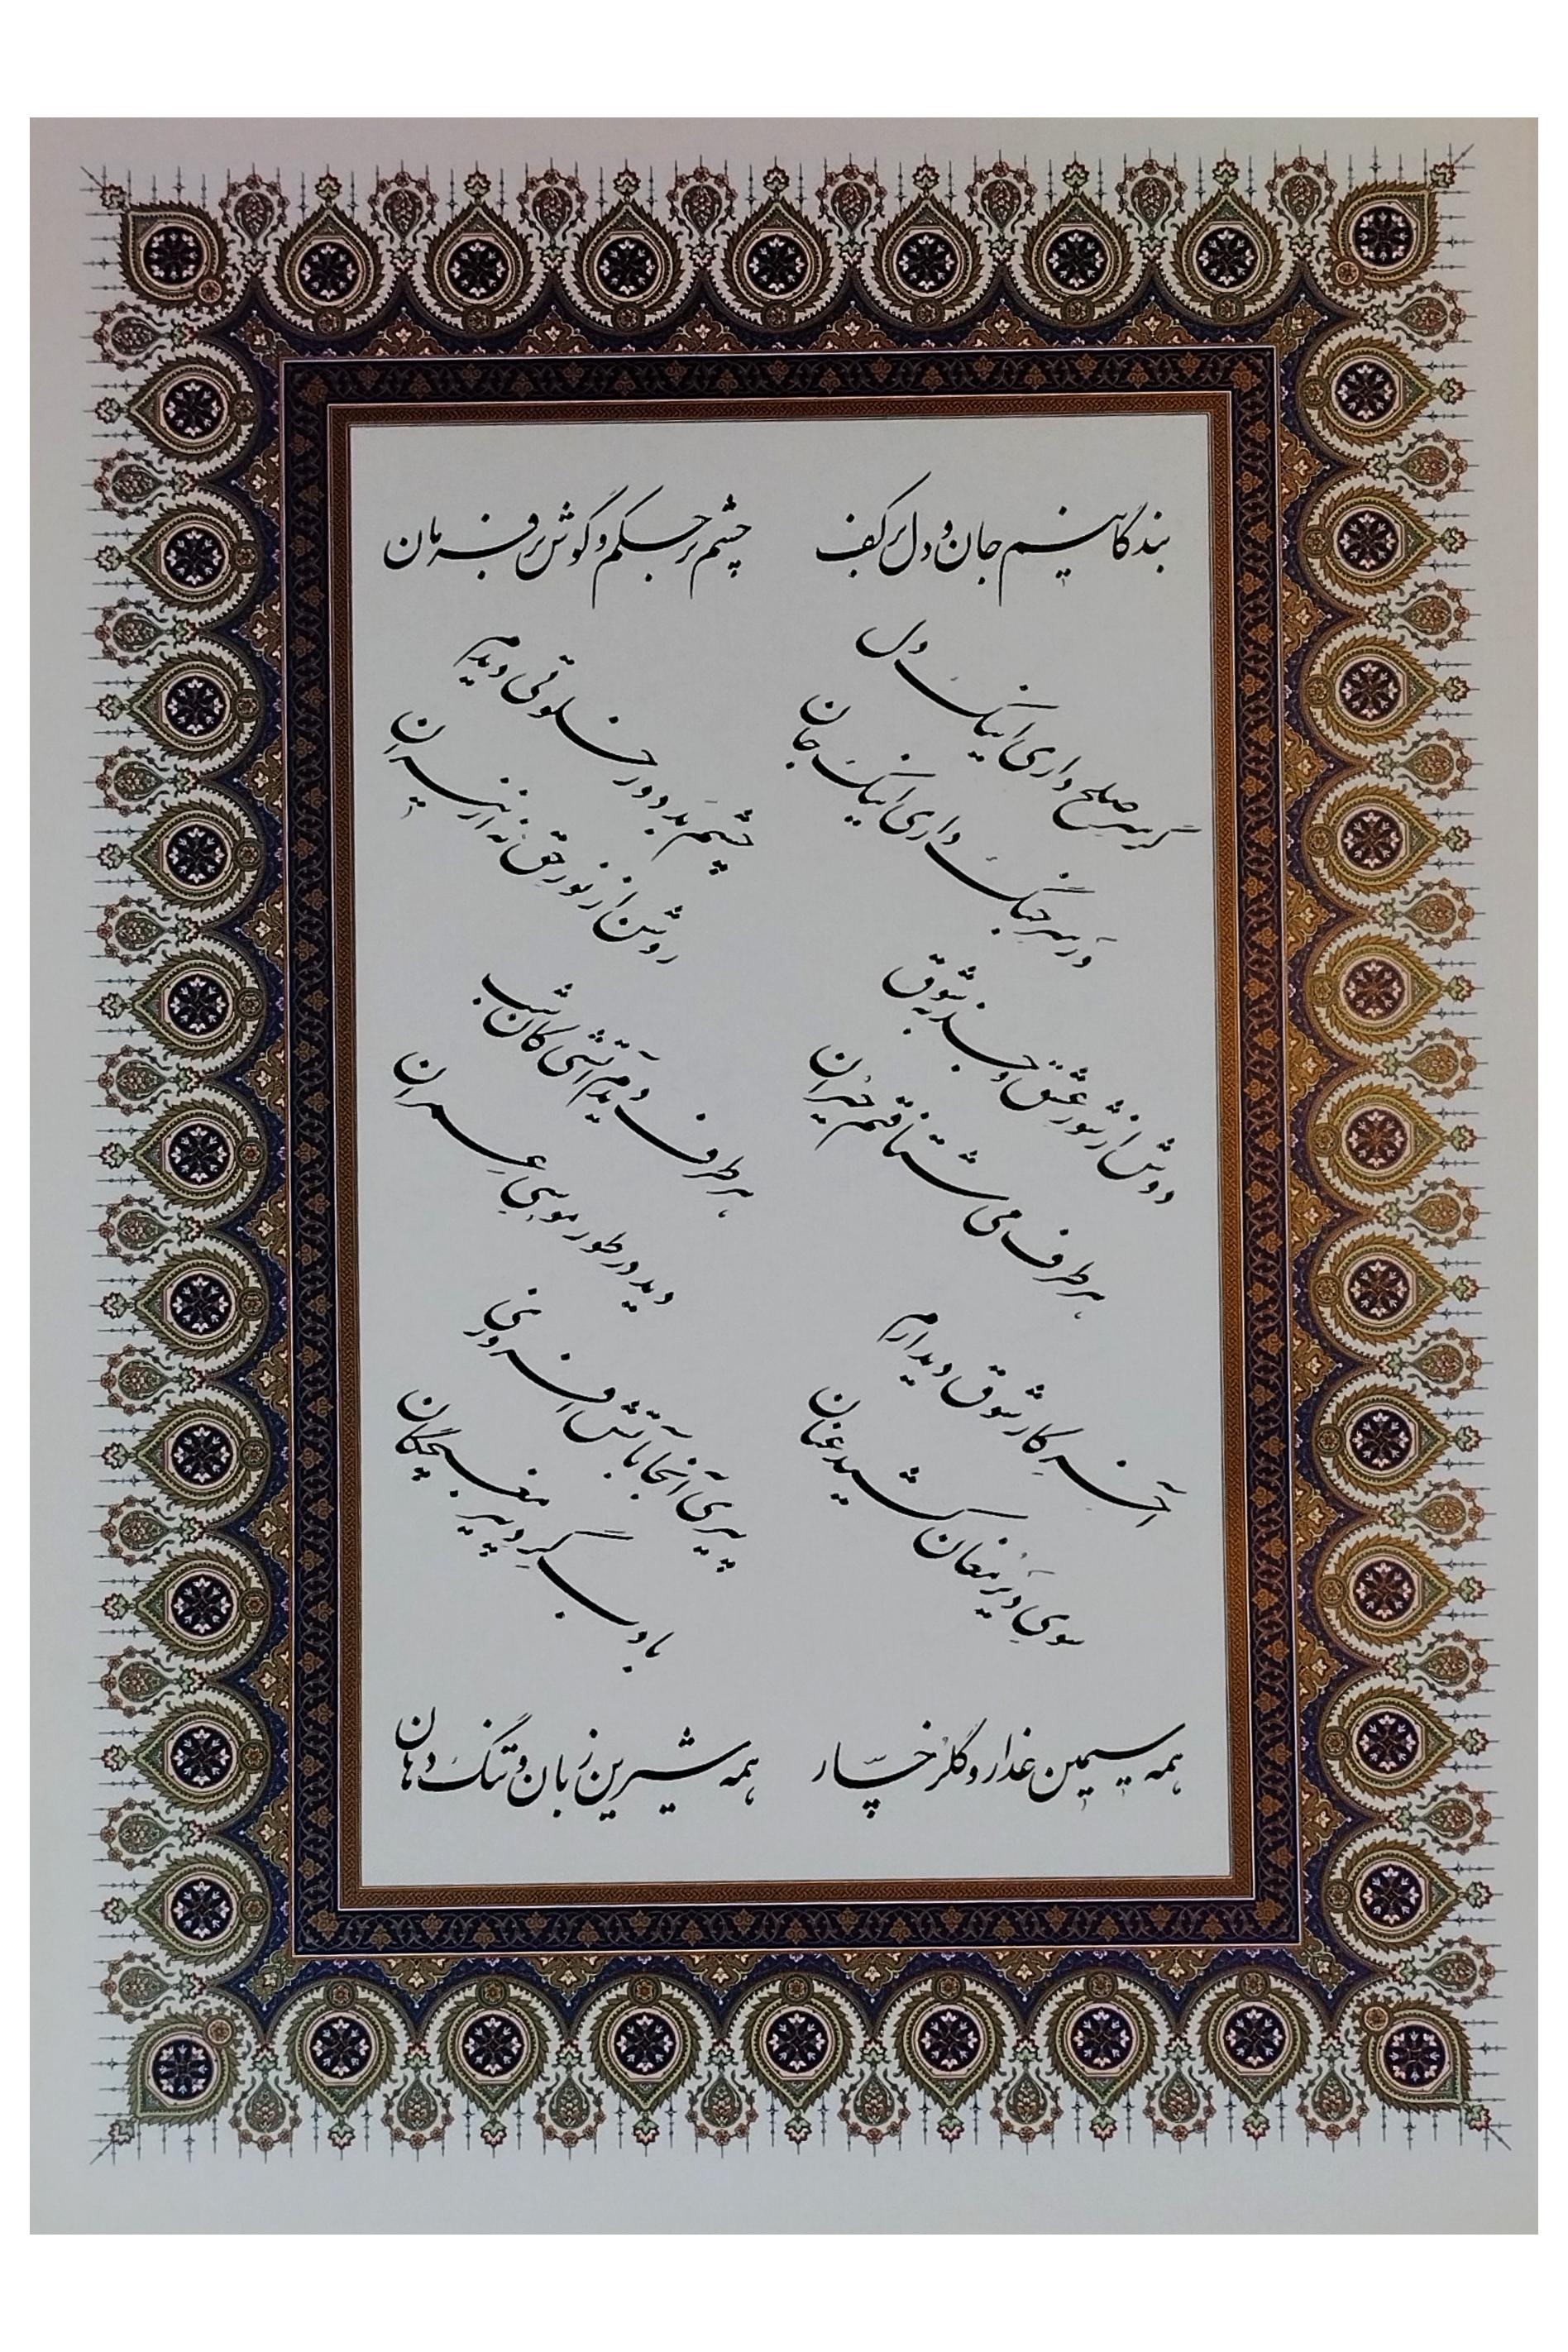 بندگانیم جان و دل بر کف
چشم بر حکم و گوش بر فرمان
گر سر صلح داری اینک دل
ور سر جنگ داری اینک جان
دوش از شور عشق و جذبه شوق
هر طرف می شتافتم حیران
آخر کار شوق دیدارم
سوی دیر مغان کشید عنان
چشم بد دور خلوتی دیدم
روشن از نور حق نه از نیران
هر طرف دیدم آتشی کان شب
دید در طور موسی عمران
پیری آنجا به آتش افروزی
بادب گرد پیر مغبچگان
همه سیمین عذار و گلرخسار
همه شیرین زبان و تنگ دهان